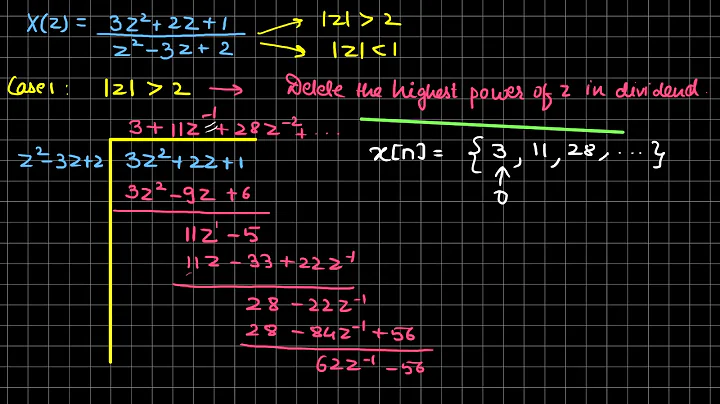 X(z) = 3z² + 2z + 1 / z² - 3z + 2
|z| > 2
|z| < 1
Case 1 : |z| > 2 → Delete the highest power of z in dividend.
3 + 11z⁻¹ + 28z⁻² + ...
z² - 3z + 2 3z² + 2z + 1
x[n] = { 3 , 11 , 28 , ... }
↑
0
3z² - 9z + 6
11z - 5
11z - 33 + 22z⁻¹
28 - 22z⁻¹
28 - 84z⁻¹ + 56
62z⁻¹ - 56